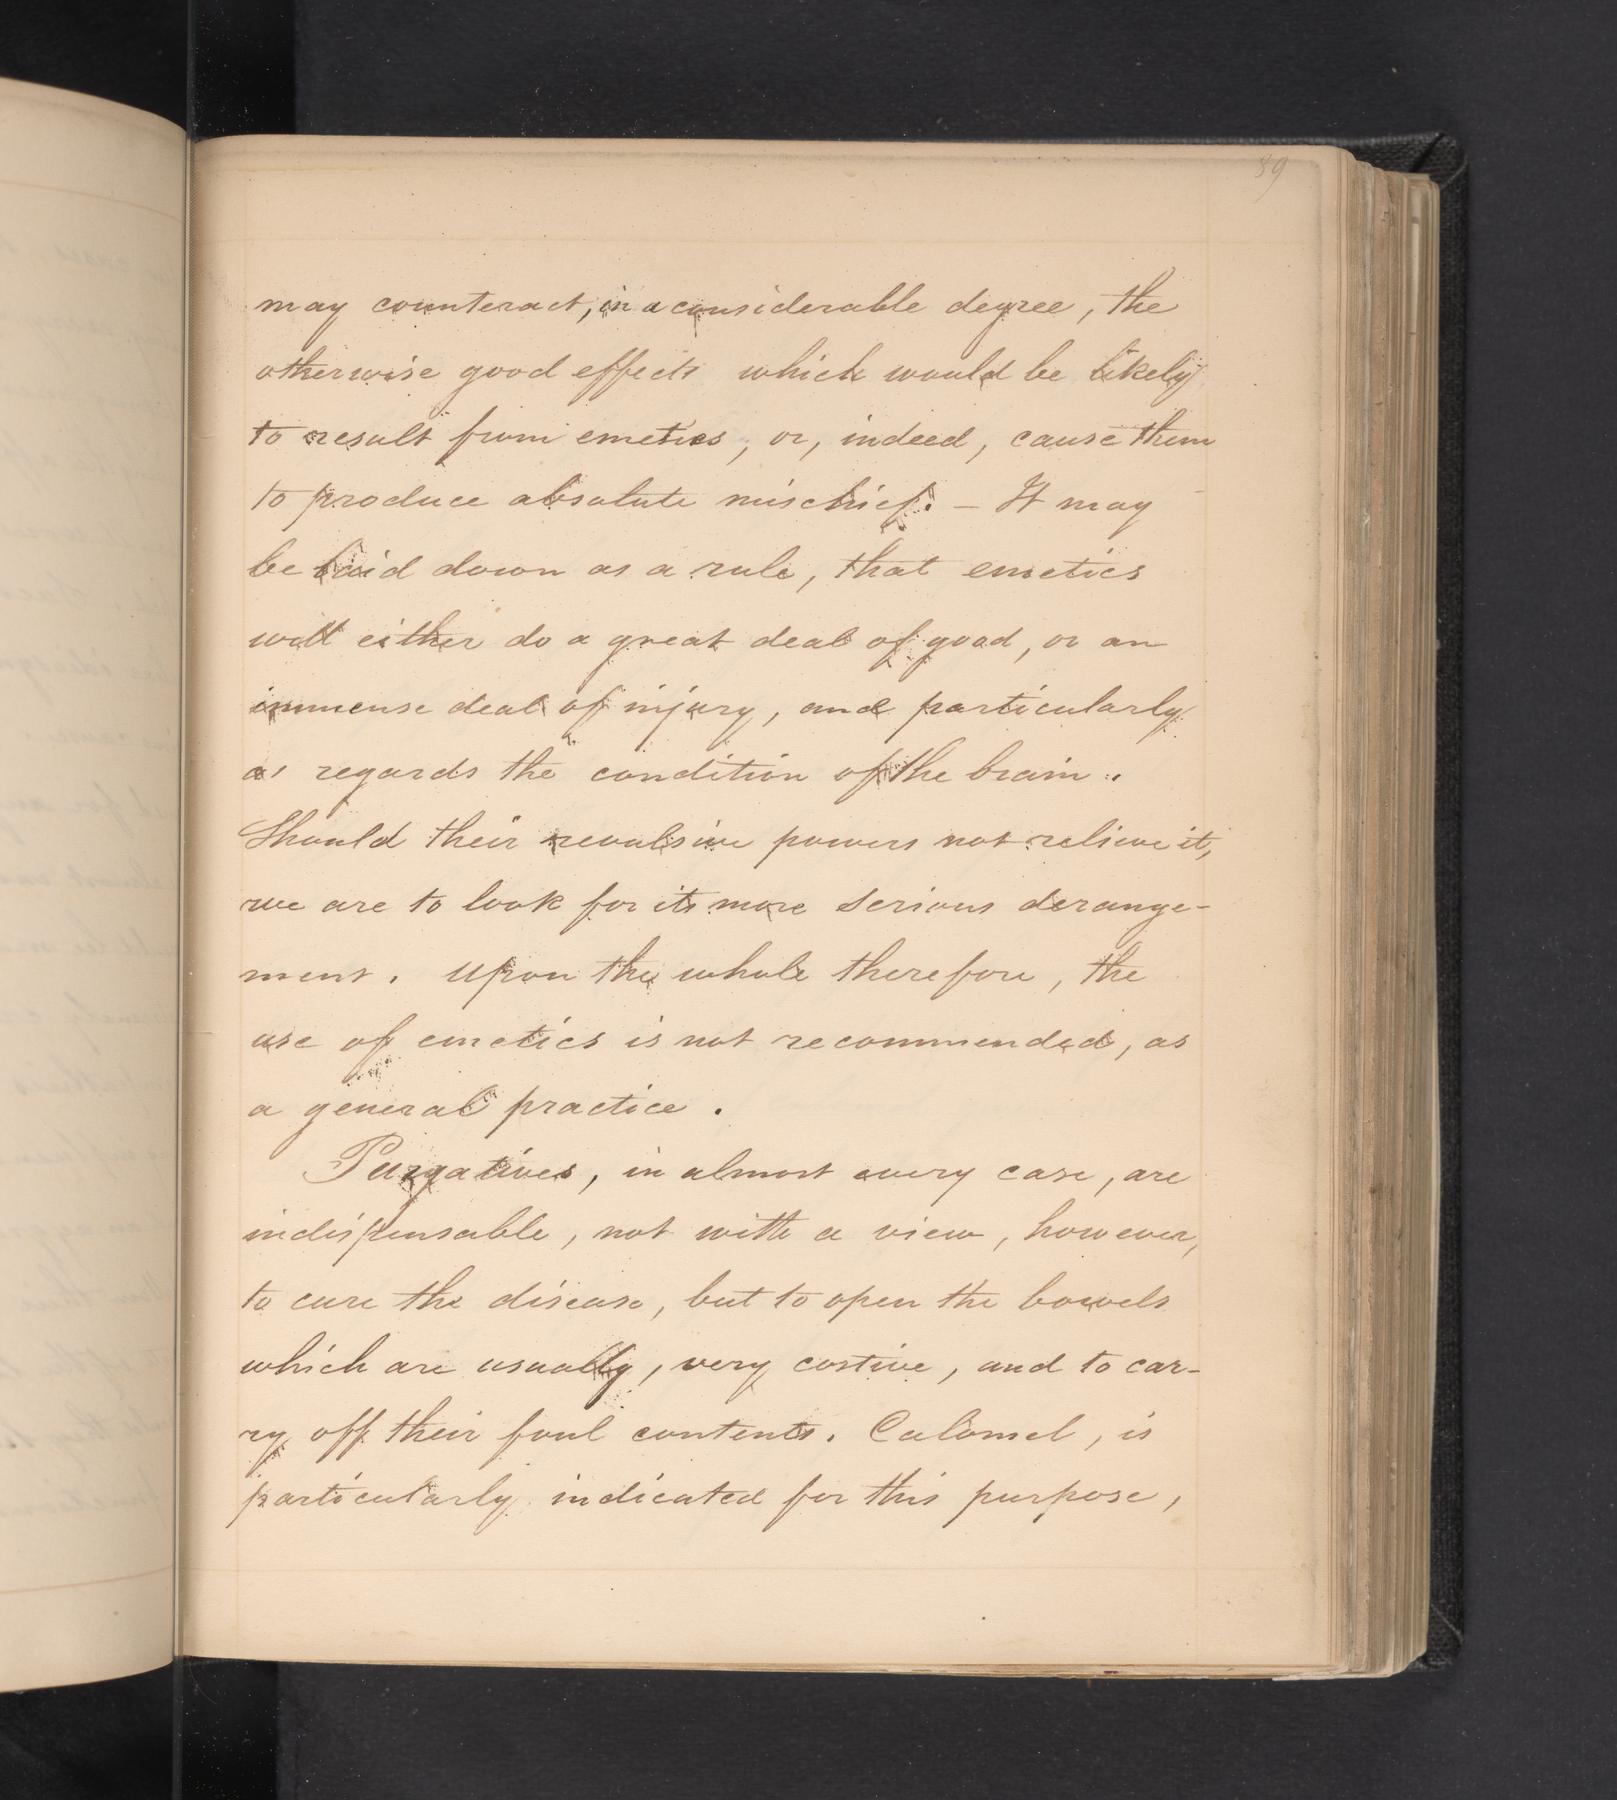 89
may counteract, in a considerable degree, the
otherwise good effects which would be likely
to result from emetics, or, indeed, cause them
to produce absolute mischief. — It may
be laid down as a rule, that emetics
will either do a great deal of good, or an
immense deal of injury, and particularly
as regards the condition of the brain.
Should their revulsive powers not relieve it,
we are to look for its more serious derange-
ment. Upon the whole therefore, the
use of emetics is not recommended, as
a general practice.
Purgatives, in almost every case, are
indispensable, not with a view, however,
to cure the disease, but to open the bowels
which are usually, very costive, and to car-
ry off their foul contents. Calomel, is
particularly indicated for this purpose,